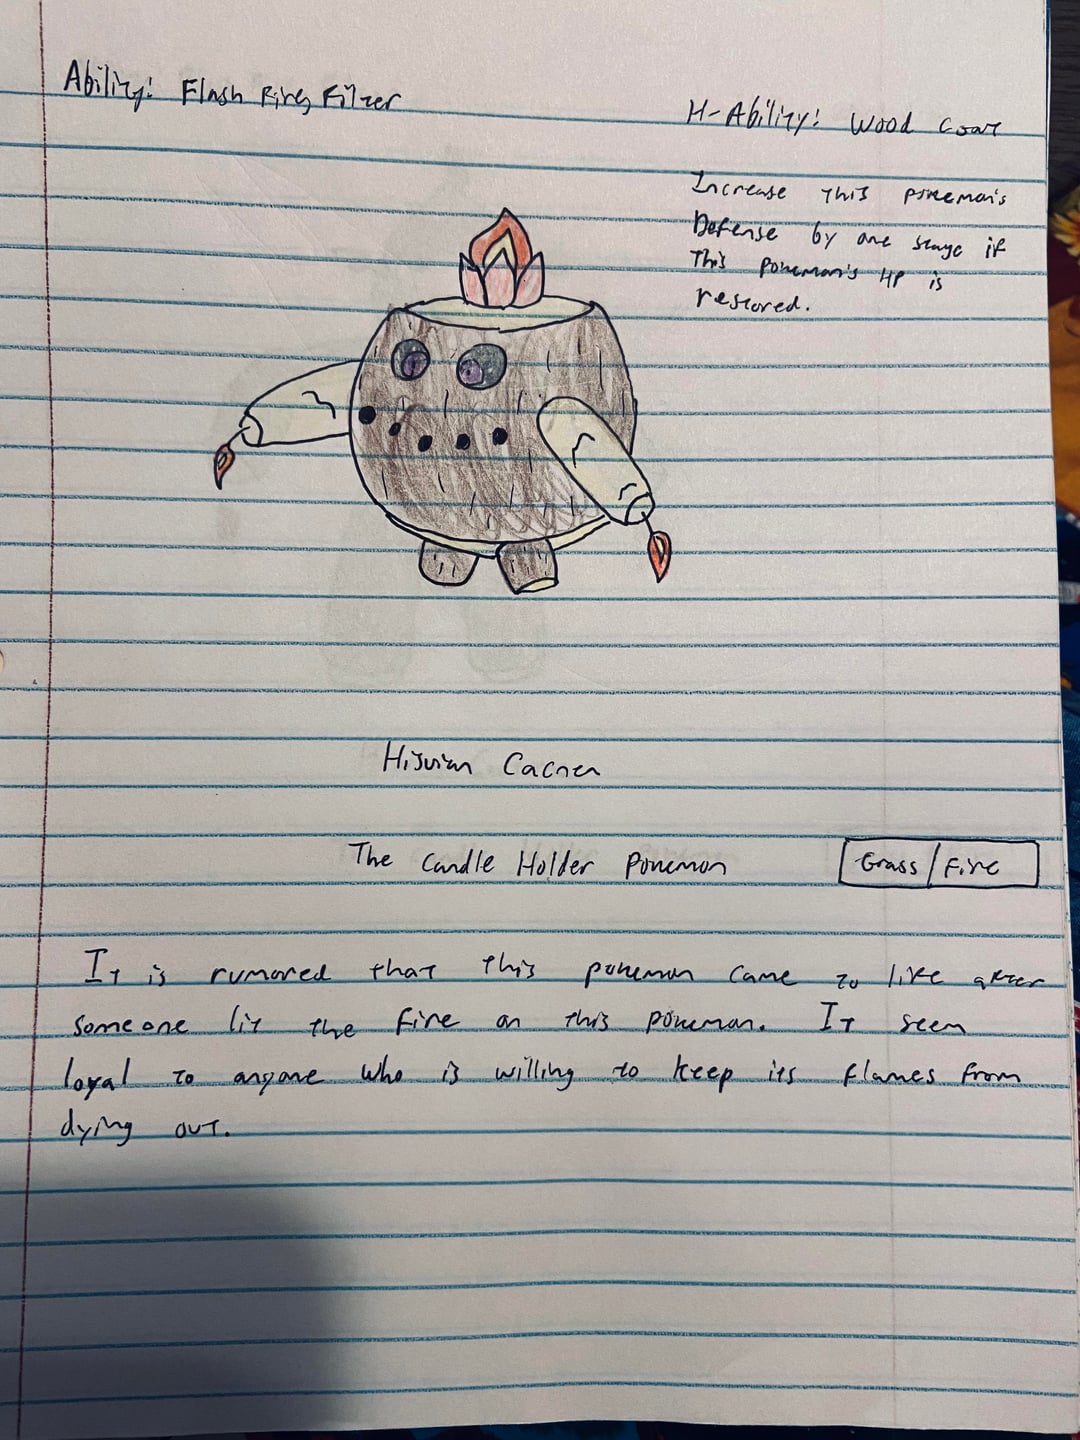 Ability: Flash Fire, Filter
H-Ability: Wood Coat
Increase this pokemon's
Defense by one stage if
This pokemon's HP is
restored.
Hisuian Cacnea
The Candle Holder Pokemon
Grass/Fire
It is rumored that this pokemon came to life after
someone lit the fire on this pokemon. It seem
loyal to anyone who is willing to keep its flames from
dying out.